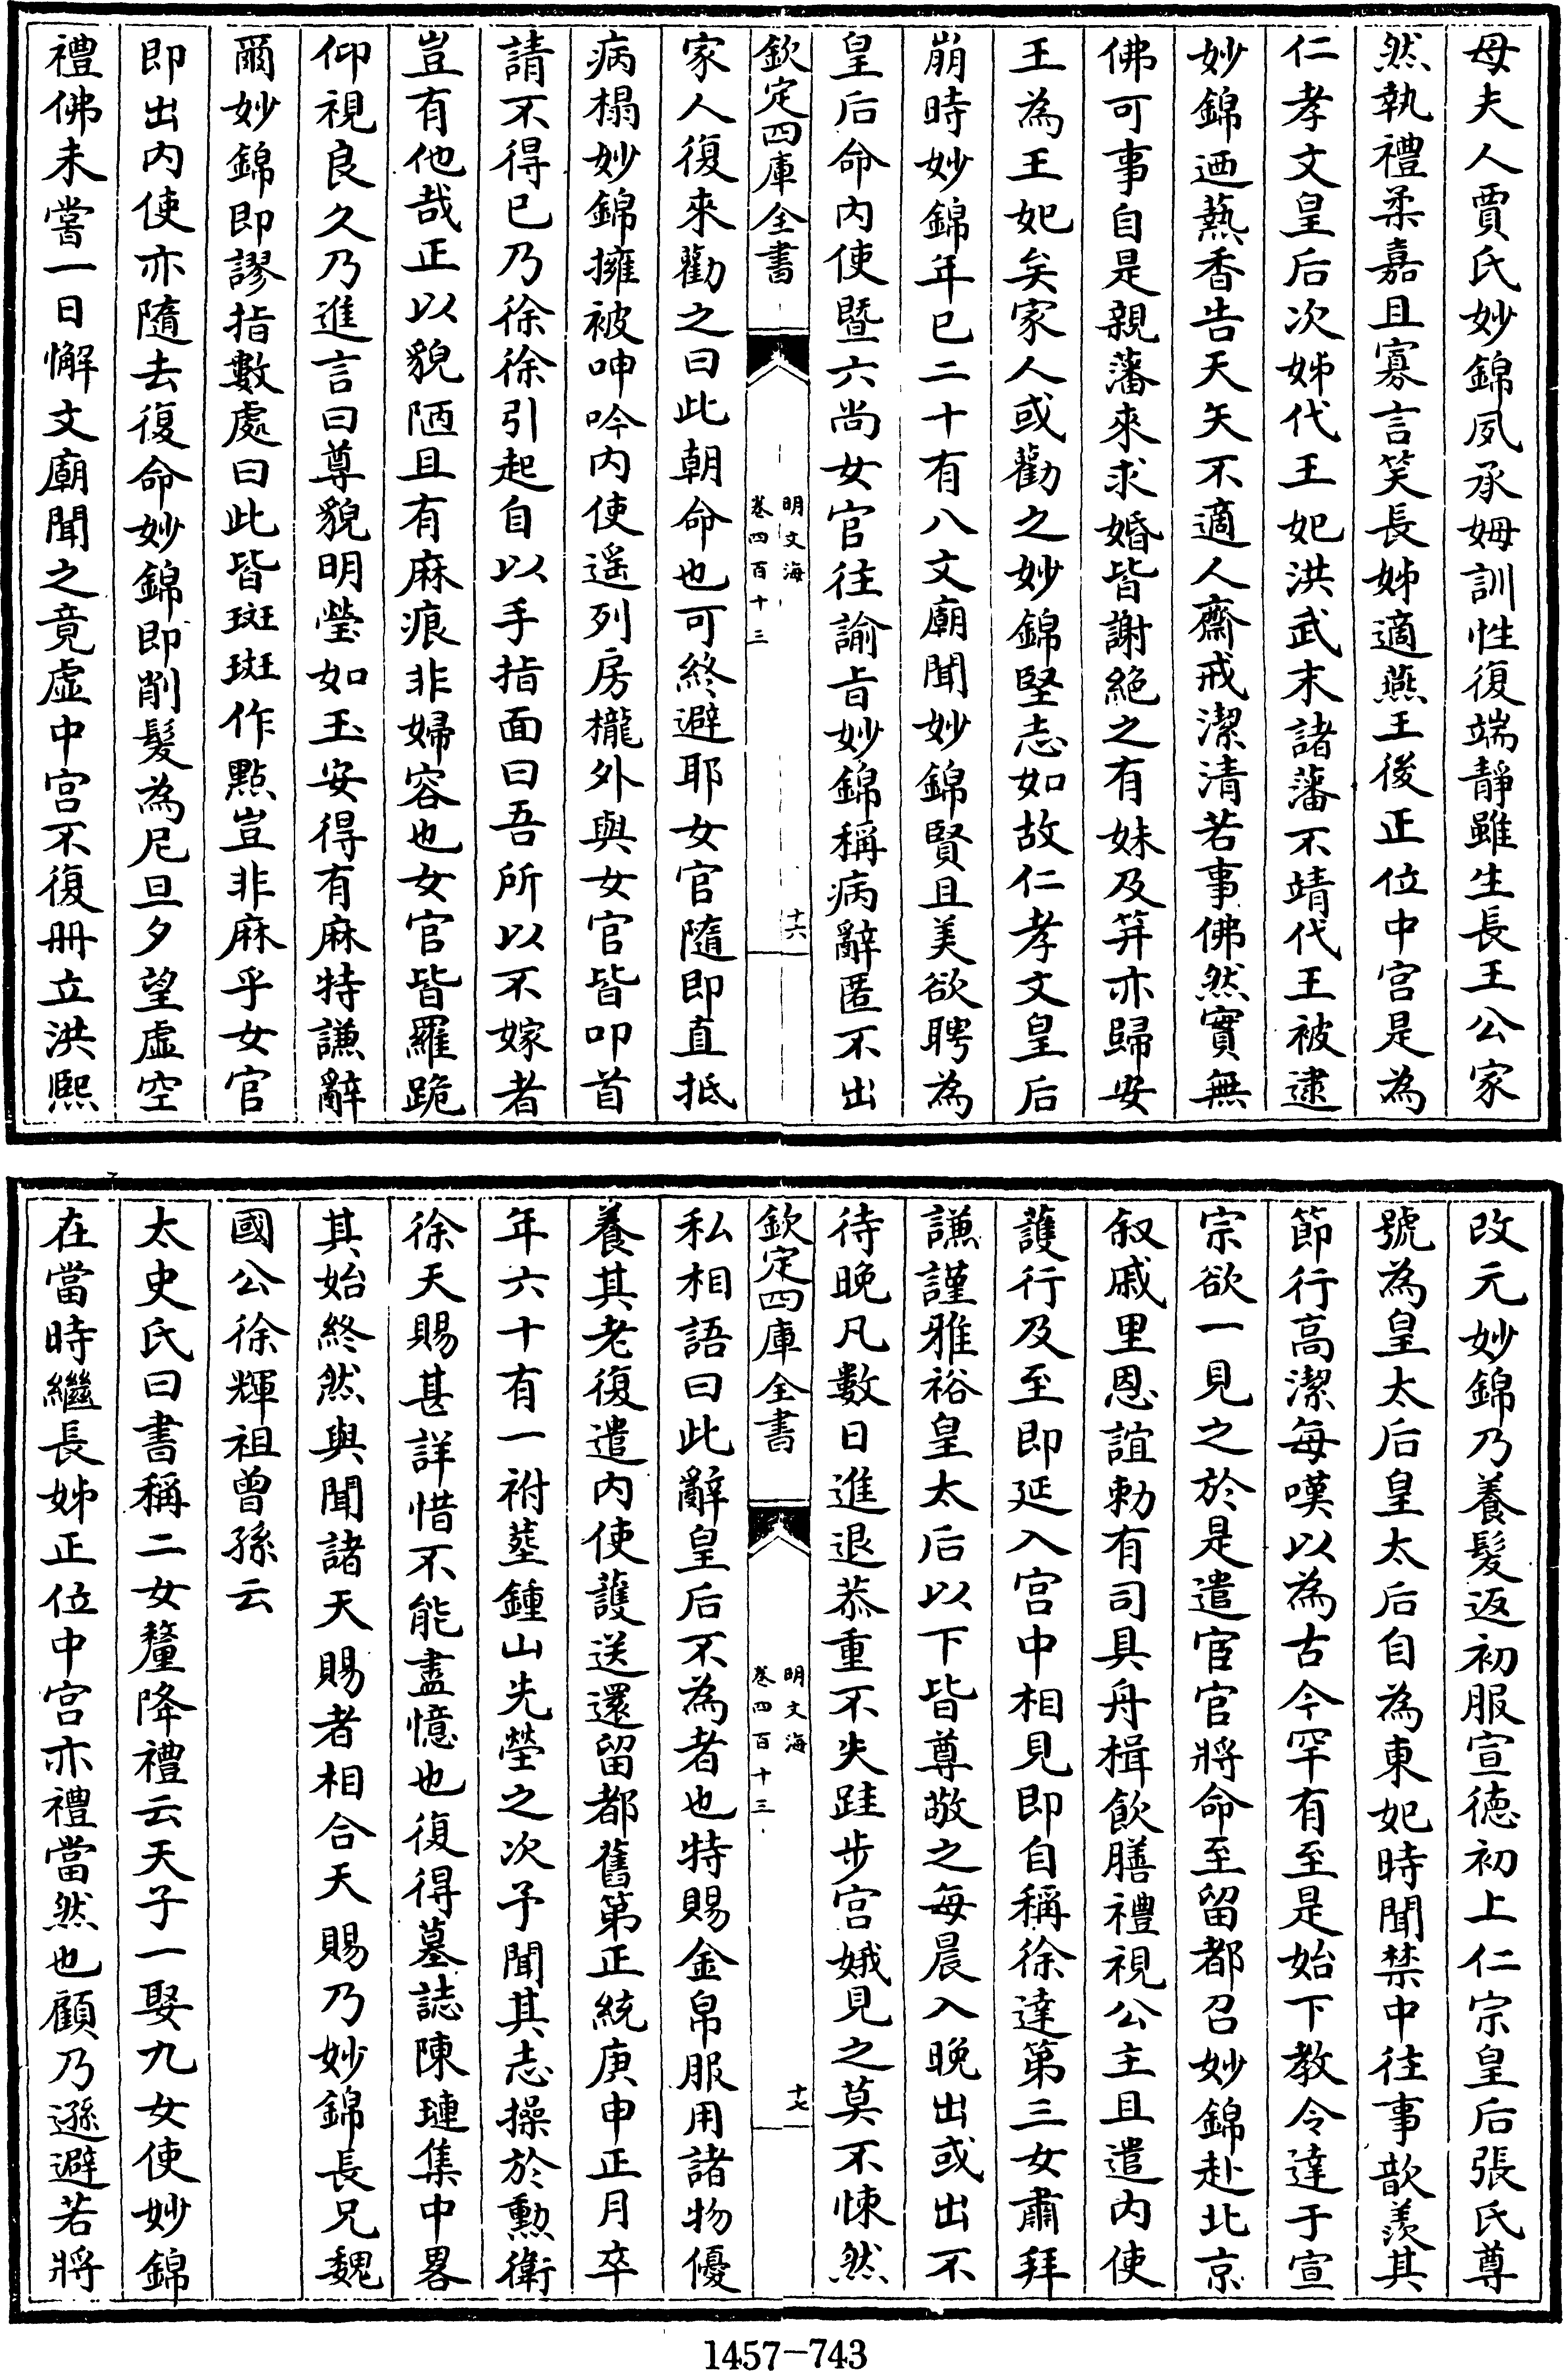 母夫人賈氏妙錦夙承姆訓性復端靜雖生長王公家
然執禮柔嘉且寡言笑長姊適燕王後正位中宮是為
仁孝文皇后次姊代王妃洪武末諸藩不靖代王被逮
妙錦迺爇香告天矢不適人齋戒潔清若事佛然實無
佛可事自是親藩來求婚皆謝絶之有妹及笄亦歸安
王為王妃矣家人或勸之妙錦堅志如故仁孝文皇后
崩時妙錦年已二十有八文廟聞妙錦賢且美欲聘為
皇后命内使暨六尚女官往諭旨妙錦稱病辭匿不出
欽定四庫全書
明文海
卷四百十三
十六
家人復來勸之曰此朝命也可終避耶女官隨即直抵
病榻妙錦擁被呻吟内使遥列房櫳外與女官皆叩首
請不得已乃徐徐引起自以手指面曰吾所以不嫁者
豈有他哉正以貌陋且有麻痕非婦容也女官皆羅跪
仰視良久乃進言曰尊貌明瑩如玉安得有麻特謙辭
爾妙錦即謬指數處曰此皆斑斑作點豈非麻乎女官
即出内使亦隨去復命妙錦即削髮為尼旦夕望虚空
禮佛未嘗一日懈文廟聞之竟虚中宫不復冊立洪熙
改元妙錦乃養髮返初服宣徳初上仁宗皇后張氏尊
號為皇太后皇太后自為東妃時聞禁中往事歆羨其
節行高潔每嘆以為古今罕有至是始下教令達于宣
宗欲一見之於是遣宦官將命至留都召妙錦赴北京
叙戚里恩誼勅有司具舟楫飲膳禮視公主且遣内使
護行及至即延入宫中相見即自稱徐達第三女肅拜
謙謹雅裕皇太后以下皆尊敬之每晨入晚出或出不
待晚凡數日進退恭重不失跬步宫娥見之莫不悚然
欽定四庫全書
明文海
卷四百十三
十七
私相語曰此辭皇后不為者也特賜金帛服用諸物優
養其老復遣内使護送還留都舊第正統庚申正月卒
年六十有一祔塟鍾山先塋之次予聞其志操於勲衛
徐天賜甚詳惜不能盡憶也復得墓誌陳璉集中畧
其始終然與聞諸天賜者相合天賜乃妙錦長兄魏
國公徐輝祖曾孫云
太史氏曰書稱二女釐降禮云天子一娶九女使妙錦
在當時繼長姊正位中宫亦禮當然也顧乃遜避若將
1457-743